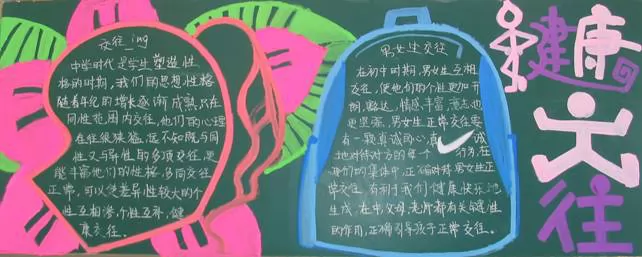 交往 ing
中学时代是学生塑造性
格的时期，我们的思想性格
随着年纪的增长逐渐成熟，只在
同性范围内交往，他们的心理
往往很狭猛，远不如既与同
性又与异性的多项交往，更
能丰富他们的性格，多向交往
正常，可以使差异性较大的个
性互相渗，个性互补，健
康交往。
男女生交往
在初中时期，男女生互相
交往，使他们的个性更加开
朗，豁达，情感丰富，意志也
更坚强，男女生正常交往要
有一颗真诚的心，诚
地对待对方的每个行为，在
我们的集体中，正确对待男女生正
常交往，有利于我们健康快乐地
生成，在中父母，老师都有关键性
的作用，正确引导孩子正常交往。
健康
交往